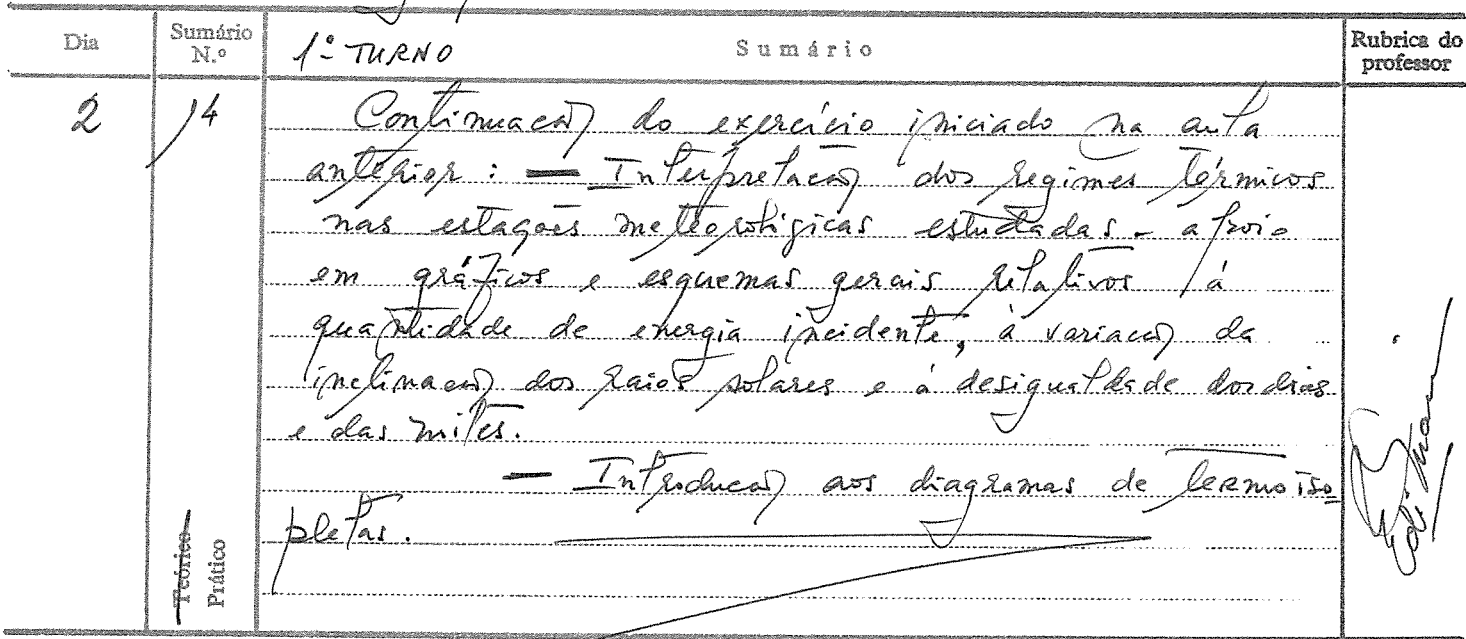 Dia
Sumário N.º
1º TURNO
Sumário
Rubrica do professor
2
14
Continuação do exercício iniciado na aula
anterior : — Interpretação dos regimes térmicos
nas estações meteorológicas estudadas - apoio
em gráficos e esquemas gerais relativos à
quantidade de energia incidente, à variação da
inclinação dos raios solares e à desigualdade dos dias
e das noites.
— Introdução aos diagramas de termoiso
pletas.
Teórico
Prático